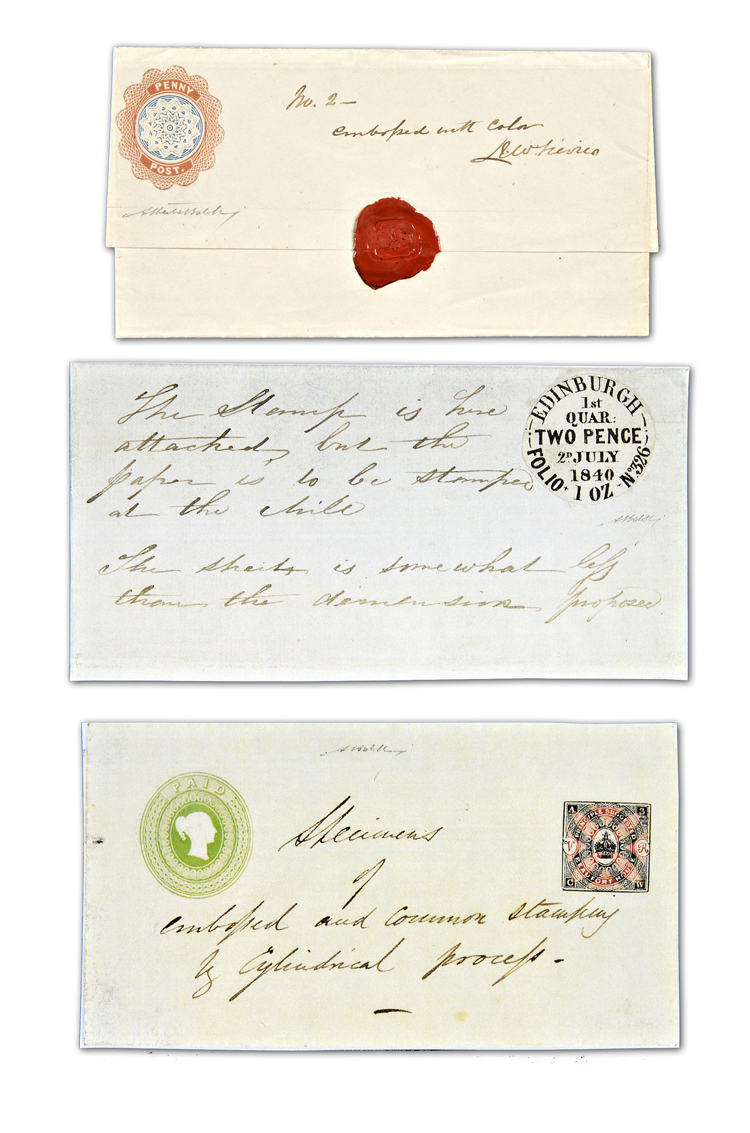 PENNY
POST.
No. 2 —
embossed with Color
EDINBURGH
1st
QUAR:
TWO PENCE
2D JULY
1840
1 OZ
FOLIO
No. 326
The Stamp is here
attached, but the
paper is to be stamped
at the Mill
The sheet, is somewhat less
than the demension proposed
PAID
Specimens
of
embossed and common stamping
by Cylindrical process -
A 3
BEAUFORT HOUSE
C W